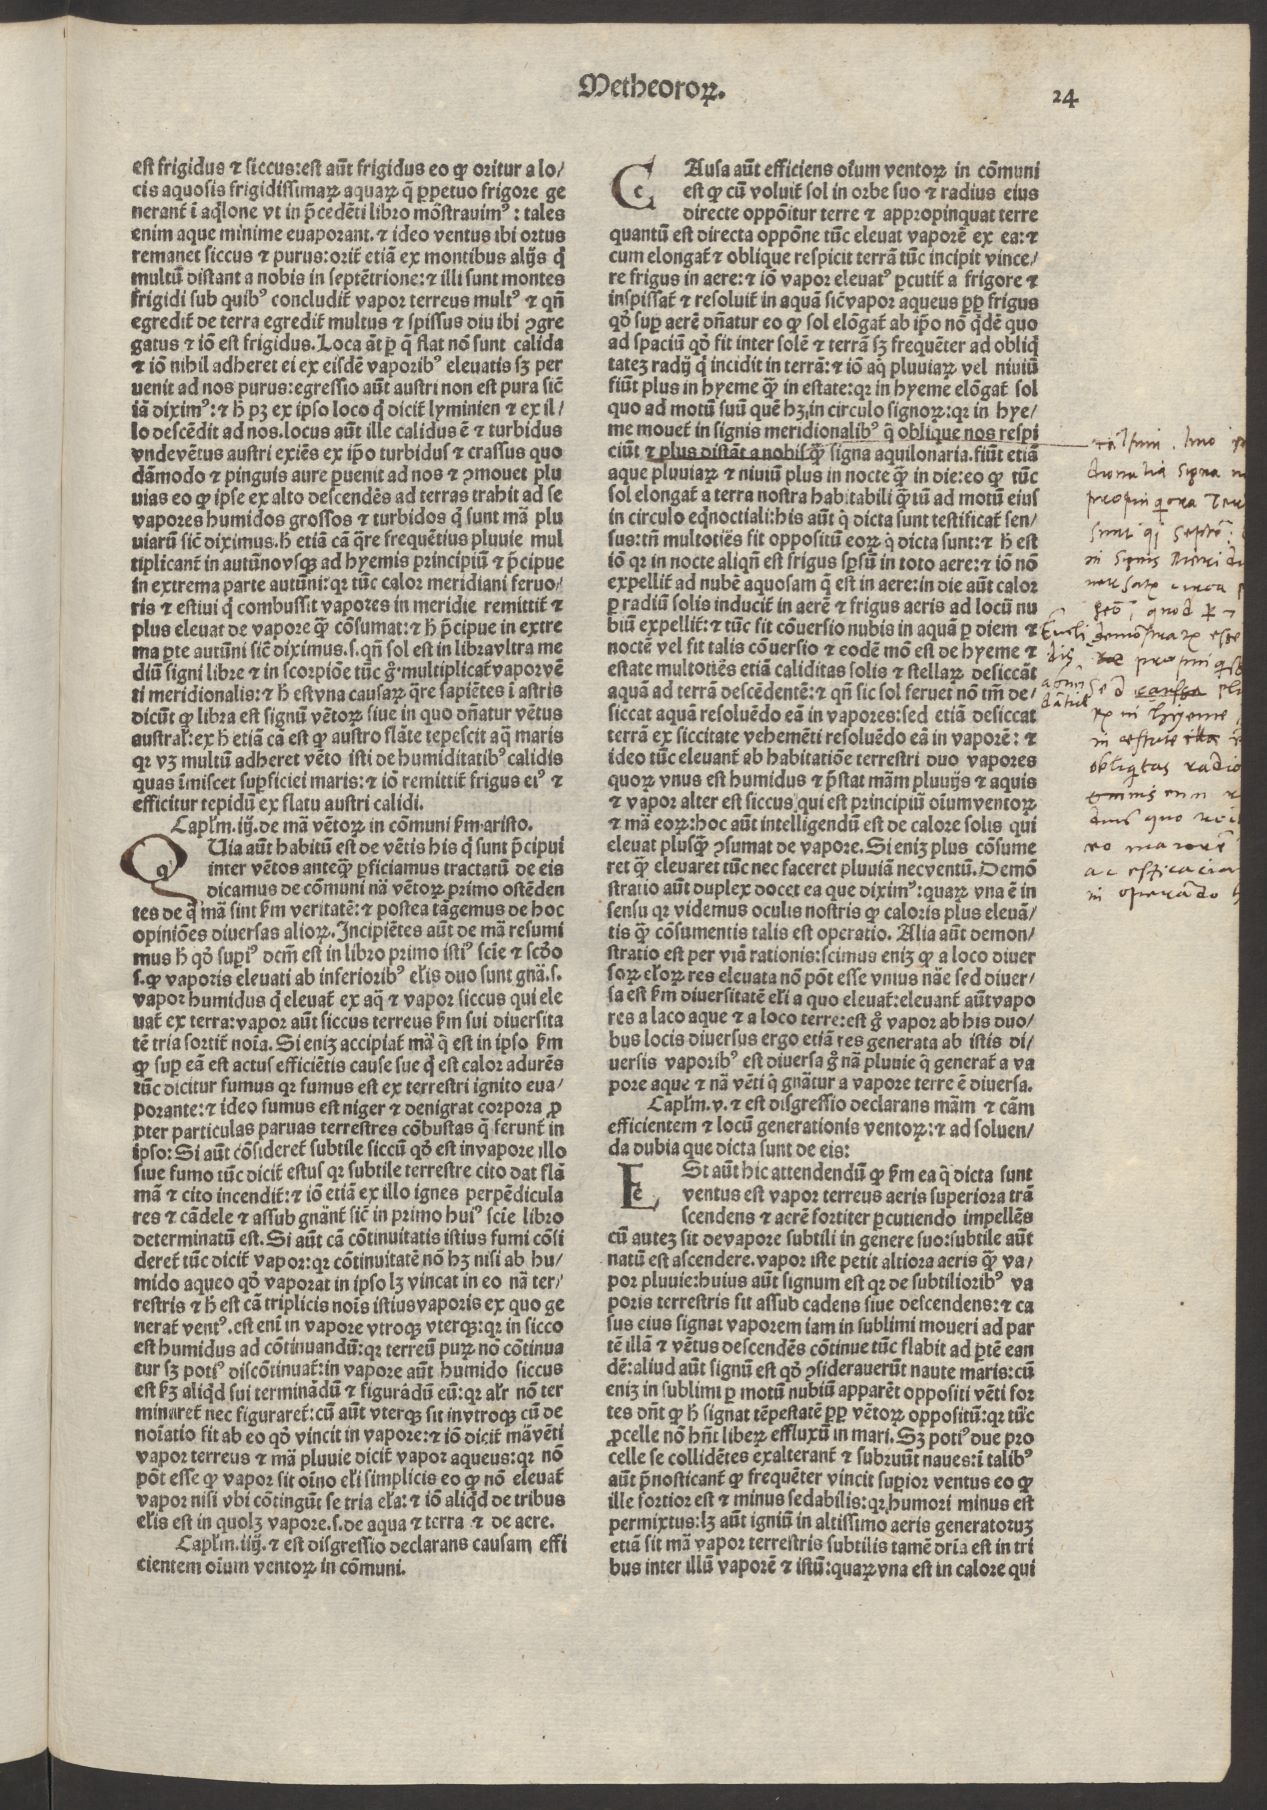 Metheoroꝝ.
24
est frigidus ⁊ siccus: est aūt frigidus eo ꝙ oritur a lo/
cis aquosis frigidissimaꝝ aquaꝝ q̄ ꝑpetuo frigore ge
nerant̄ ī aq̇lone vt in p̄cedēti libro mōstrauimꝰ: tales
enim aque minime euaporant. ⁊ ideo ventus ibi ortus
remanet siccus ⁊ purus: orit̄ etiā ex montibus alijs q̇
multū distant a nobis in septētrione: ⁊ illi sunt montes
frigidi sub quibꝰ concludit̄ vapor terreus multꝰ ⁊ qn̄
egredit̄ de terra egredit̄ multus ⁊ spissus diu ibi ꝯgre
gatus ⁊ iō est frigidus. Loca āt ꝑ q̄ flat nō sunt calida
⁊ iō nihil adheret ei ex eisdē vaporibꝰ eleuatis sꝫ per
uenit ad nos purus: egressio aūt austri non est pura sic̄
iā diximꝰ: ⁊ h̄ pꝫ ex ipso loco q̇ dicit̄ lyminien ⁊ ex il/
lo descēdit ad nos. locus aūt ille calidus ē ⁊ turbidus
vndeuētus austri exiēs ex ip̄o turbidus ⁊ crassus quo
dāmodo ⁊ pinguis aure ꝑuenit ad nos ⁊ ꝯmouet plu
uias eo ꝙ ipse ex alto descendēs ad terras trahit ad se
vapores humidos grossos ⁊ turbidos q̇ sunt mā plu
uiarū sic̄ diximus. h̄ etiā cā q̄re frequētius pluuie mul
tiplicant̄ in autūnovsqꝫ ad hyemis principiū ⁊ p̄cipue
in extrema parte autūni: qꝛ tūc calor meridiani feruo/
ris ⁊ estiui q̇ combussit vapores in meridie remittit̄ ⁊
plus eleuat de vapore q̄ꝫ cōsumat: ⁊ h̄ p̄cipue in extre
ma ꝑte autūni sic̄ diximus. s. qn̄ sol est in libra vltra me
diū signi libre ⁊ in scorpiōe tūc g̊ multiplicat̄ vapor vē
ti meridionalis: ⁊ h̄ est vna causaꝝ q̄re sapiētes ī astris
dicūt ꝙ libra est signū vētoꝝ siue in quo dn̄atur vētus
austral̓: ex h̄ etiā cā est ꝙ austro flāte tepescit aq̄ maris
qꝛ vꝫ multū adheret vēto isti de humiditatibꝰ calidis
quas īmiscet suꝑficiei maris: ⁊ iō remittit̄ frigus eiꝰ ⁊
efficitur tepidū ex flatu austri calidi.
Capl̓m. iij. de mā vētoꝝ in cōmuni ẜm aristo.
Q Uia aūt habitū est de vētis his q̇ sunt p̄cipui
inter vētos anteq̄ꝫ ꝑficiamus tractatū de eis
dicamus de cōmuni nā vētoꝝ primo ostēden
tes de q̇ mā sint ẜm veritatē: ⁊ postea tāgemus de hoc
opiniōes diuersas alioꝝ. Incipiētes aūt de mā resumi
mus h̄ qd̓ supiꝰ dcm̄ est in libro primo istiꝰ scīe ⁊ scd̓o
s. ꝙ vaporis eleuati ab inferioribꝰ el̓is duo sunt gn̄a. s.
vapor humidus q̇ eleuat̄ ex aq̄ ⁊ vapor siccus qui ele
uat̄ ex terra: vapor aūt siccus terreus ẜm sui diuersita
tē tria sortit̄ noīa. Si eniꝫ accipiat̄ mā q̄ est in ipso ẜm
ꝙ suꝑ eā est actus efficiētis cause sue q̇ est calor adurēs
tūc dicitur fumus qꝛ fumus est ex terrestri ignito eua/
porante: ⁊ ideo fumus est niger ⁊ denigrat corpora ꝓ
pter particulas paruas terrestres cōbustas q̄ ferunt̄ in
ipso: Si aūt cōsideret̄ subtile siccū qd̓ est invapore illo
siue fumo tūc dicit̄ estus qꝛ subtile terrestre cito dat flā
mā ⁊ cito incendit̄: ⁊ iō etiā ex illo ignes perpēdicula
res ⁊ cādele ⁊ assub gn̄ant̄ sic̄ in primo huiꝰ scīe libro
determinatū est. Si aūt cā cōtinuitatis istius fumi cōsi
deret̄ tūc dicit̄ vapor: qꝛ cōtinuitatē nō hꝫ nisi ab hu/
mido aqueo qd̓ vaporat in ipso lꝫ vincat in eo nā ter/
restris ⁊ h̄ est cā triplicis noīs istius vaporis ex quo ge
nerat̄ ventꝰ. est enī in vapore vtroqꝫ vterqꝫ: qꝛ in sicco
est humidus ad cōtinuandū: qꝛ terreū puꝝ nō cōtinua
tur sꝫ potiꝰ discōtinuat̄: in vapore aūt humido siccus
est ẜꝫ aliq̇d sui terminādū ⁊ figurādū eū: qꝛ al̓r nō ter
minaret̄ nec figuraret̄: cū aūt vterqꝫ sit invtroqꝫ cū de
noīatio fit ab eo qd̓ vincit in vapore: ⁊ iō dicit̄ mā vēti
vapor terreus ⁊ mā pluuie dicit̄ vapor aqueus: qꝛ nō
pōt esse ꝙ vapor sit oīno el̓i simplicis eo ꝙ nō eleuat̄
vapor nisi vbi cōtingūt se tria el̓a: ⁊ iō aliq̇d de tribus
el̓is est in quolꝫ vapore. s. de aqua ⁊ terra ⁊ de aere.
Capl̓m. iiij. ⁊ est disgressio declarans causam effi
cientem oīum ventoꝝ in cōmuni.
C Ausa aūt efficiens oīum ventoꝝ in cōmuni
est ꝙ cū voluit̄ sol in orbe suo ⁊ radius eius
directe oppōitur terre ⁊ appropinquat terre
quantū est directa oppōne tūc eleuat vaporē ex ea: ⁊
cum elongat̄ ⁊ oblique respicit terrā tūc incipit vince/
re frigus in aere: ⁊ iō vapor eleuatꝰ ꝑcutit̄ a frigore ⁊
inspissat̄ ⁊ resoluit̄ in aquā sic̄ vapor aqueus ꝓp̄ frigus
qd̓ suꝑ aerē dn̄atur eo ꝙ sol elōgat̄ ab ip̄o nō q̇dē quo
ad spaciū qd̓ fit inter solē ⁊ terrā sꝫ frequēter ad obliq̇
tateꝫ radij q̇ incidit in terrā: ⁊ iō aq̄ pluuiaꝝ vel niuiū
fiūt plus in hyeme q̄ꝫ in estate: qꝛ in hyeme elōgat̄ sol
quo ad motū suū quē hꝫ in circulo signoꝝ: qꝛ in hye/
me mouet̄ in signis meridionalibꝰ q̄ oblique nos respi
ciūt ⁊ plus distāt a nobis q̄ꝫ signa aquilonaria. fiūt etiā
aque pluuiaꝝ ⁊ niuiū plus in nocte q̄ꝫ in die: eo ꝙ tūc
sol elongat̄ a terra nostra habitabili q̄ꝫtū ad motū eius
in circulo eq̇noctiali: his aūt q̄ dicta sunt testificat̄ sen/
sus: tn̄ multotiēs fit oppositū eoꝝ q̄ dicta sunt: ⁊ h̄ est
iō qꝛ in nocte aliqn̄ est frigus spsū in toto aere: ⁊ iō nō
expellit̄ ad nubē aquosam q̄ est in aere: in die aūt calor
ꝑ radiū solis inducit̄ in aerē ⁊ frigus aeris ad locū nu
biū expellit̄: ⁊ tūc fit cōuersio nubis in aquā ꝑ diem ⁊
noctē vel fit talis cōuersio ⁊ eodē mō est de hyeme ⁊
estate multotiēs etiā caliditas solis ⁊ stellaꝝ desiccāt
aquā ad terrā descēdentē: ⁊ qn̄ sic sol feruet nō tm̄ de/
siccat aquā resoluēdo eā in vapores: sed etiā desiccat
terrā ex siccitate vehemēti resoluēdo eā in vaporē: ⁊
ideo tūc eleuant̄ ab habitatiōe terrestri duo vapores
quoꝝ vnus est humidus ⁊ p̄stat mām pluuijs ⁊ aquis
⁊ vapor alter est siccus qui est principiū oīumventoꝝ
⁊ mā eoꝝ: hoc aūt intelligendū est de calore solis qui
eleuat plusq̄ꝫ ꝯsumat de vapore. Si eniꝫ plus cōsume
ret q̄ꝫ eleuaret tūc nec faceret pluuiā necventū. Demō
stratio aūt duplex docet ea que diximꝰ: quaꝝ vna ē in
sensu qꝛ videmus oculis nostris ꝙ caloris plus eleuā/
tis q̄ꝫ cōsumentis talis est operatio. Alia aūt demon/
stratio est per viā rationis: scimus eniꝫ ꝙ a loco diuer
soꝝ el̓oꝝ res eleuata nō pōt esse vnius nāe sed diuer/
sa est ẜm diuersitatē el̓i a quo eleuat̄: eleuant̄ aūtvapo
res a laco aque ⁊ a loco terre: est g̊ vapor ab his duo/
bus locis diuersus ergo etiā res generata ab istis di/
uersis vaporibꝰ est diuersa g̊ nā pluuie q̄ generat̄ a va
pore aque ⁊ nā vēti q̇ gn̄atur a vapore terre ē diuersa.
Capl̓m. v. ⁊ est disgressio declarans mām ⁊ cām
efficientem ⁊ locū generationis ventoꝝ: ⁊ ad soluen/
da dubia que dicta sunt de eis:
E St aūt hic attendendū ꝙ ẜm ea q̄ dicta sunt
ventus est vapor terreus aeris superiora trā
scendens ⁊ aerē fortiter ꝑcutiendo impellēs
cū auteꝫ sit devapore subtili in genere suo: subtile aūt
natū est ascendere. vapor iste petit altiora aeris q̄ꝫ va/
por pluuie: huius aūt signum est qꝛ de subtilioribꝰ va
poris terrestris fit assub cadens siue descendens: ⁊ ca
sus eius signat vaporem iam in sublimi moueri ad par
tē illā ⁊ vētus descendēs cōtinue tūc flabit ad ꝑtē ean
dē: aliud aūt signū est qd̓ ꝯsiderauerūt naute maris: cū
eniꝫ in sublimi ꝑ motū nubiū apparēt oppositi vēti for
tes dn̄t ꝙ h̄ signat tēpestatē ꝓp̄ vētoꝝ oppositū: qꝛ tūc
ꝓcelle nō hn̄t libeꝝ effluxū in mari. Sꝫ potiꝰ due pro
celle se collidētes exalterant̄ ⁊ subruūt naues: ī talibꝰ
aūt p̄nosticant̄ ꝙ frequēter vincit suꝑior ventus eo ꝙ
ille fortior est ⁊ minus sedabilis: qꝛ humori minus est
permixtus: lꝫ aūt igniū in altissimo aeris generatoruꝫ
etiā sit mā vapor terrestris subtilis tamē dr̄ia est in tri
bus inter illū vaporē ⁊ istū: quaꝝ vna est in calore qui
signa
sunt
in signis
circa
quod
propinq
sed
in hyeme
in estate
obliq̇tas radio
quo
maiorē
ac efficacia
in operādo